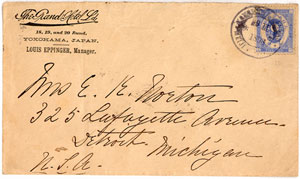 The Grand Hotel Ld.
18, 19, and 20 Bund,
YOKOHAMA, JAPAN.
LOUIS EPPINGER, Manager.
Mrs E. K. Norton
325 Lafayette Avenue
Detroit
Michigan
U.S.A.